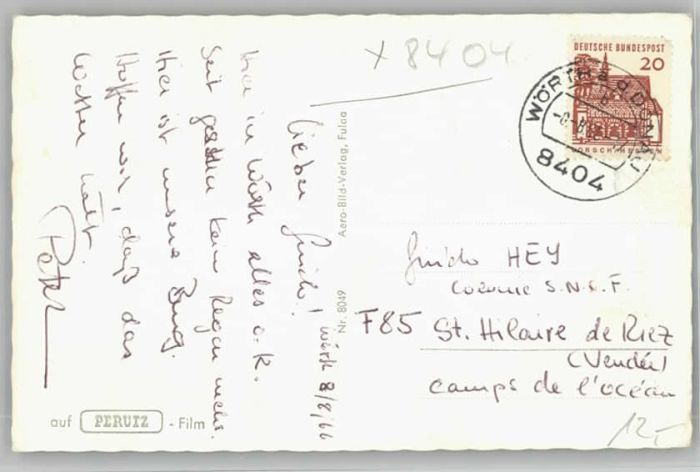 x 8404
DEUTSCHE BUNDESPOST
20
LORSCH/HESSEN
WÖRTH a.d. DONAU
8404
Lieber Guido! Wörth 8/8/66
Hier in Wörth alles o.k.
Seit gestern kein Regen mehr.
Hier ist unsere Burg.
Hoffen wir, daß das
Wetter hält.
Peter
Aero-Bild-Verlag, Fulda
Nr. 8049
Guido HEY
Colonie S.N.S.F.
F85 St. Hilaire de Riez
(Vendée)
camps de l'océan
auf PERUTZ - Film
12,-